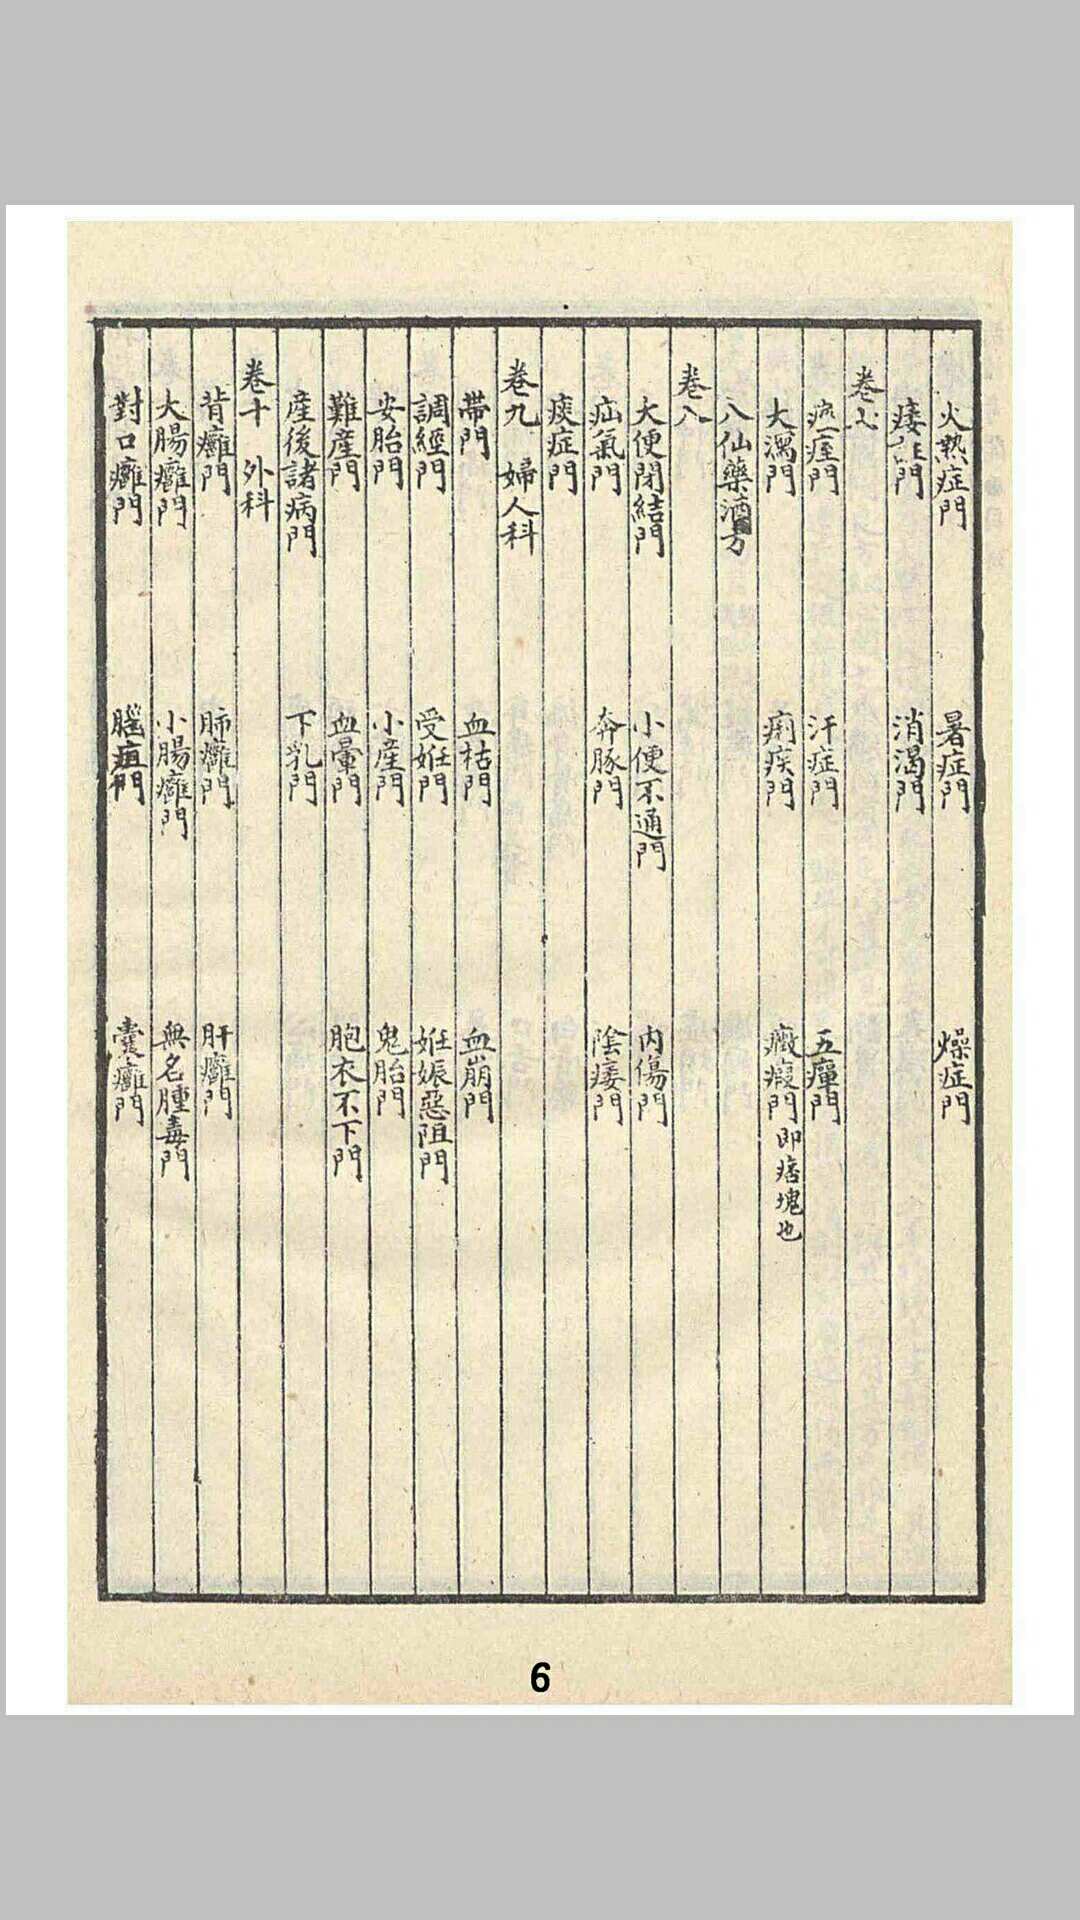 火熱症門 暑症門 燥症門
痿症門 消渴門
卷七
瘧症門 汗症門 五癉門
大瀉門 痢疾門 癥瘕門即痞塊也
八仙藥酒方
卷八
大便閉結門 小便不通門 內傷門
疝氣門 奔豚門 陰痿門
痰症門
卷九 婦人科
帶門 血枯門 血崩門
調經門 受妊門 妊娠惡阻門
安胎門 小產門 鬼胎門
難產門 血暈門 胞衣不下門
產後諸病門 下乳門
卷十 外科
背癰門 肺癰門 肝癰門
大腸癰門 小腸癰門 無名腫毒門
對口癰門 腦疽門 囊癰門
6